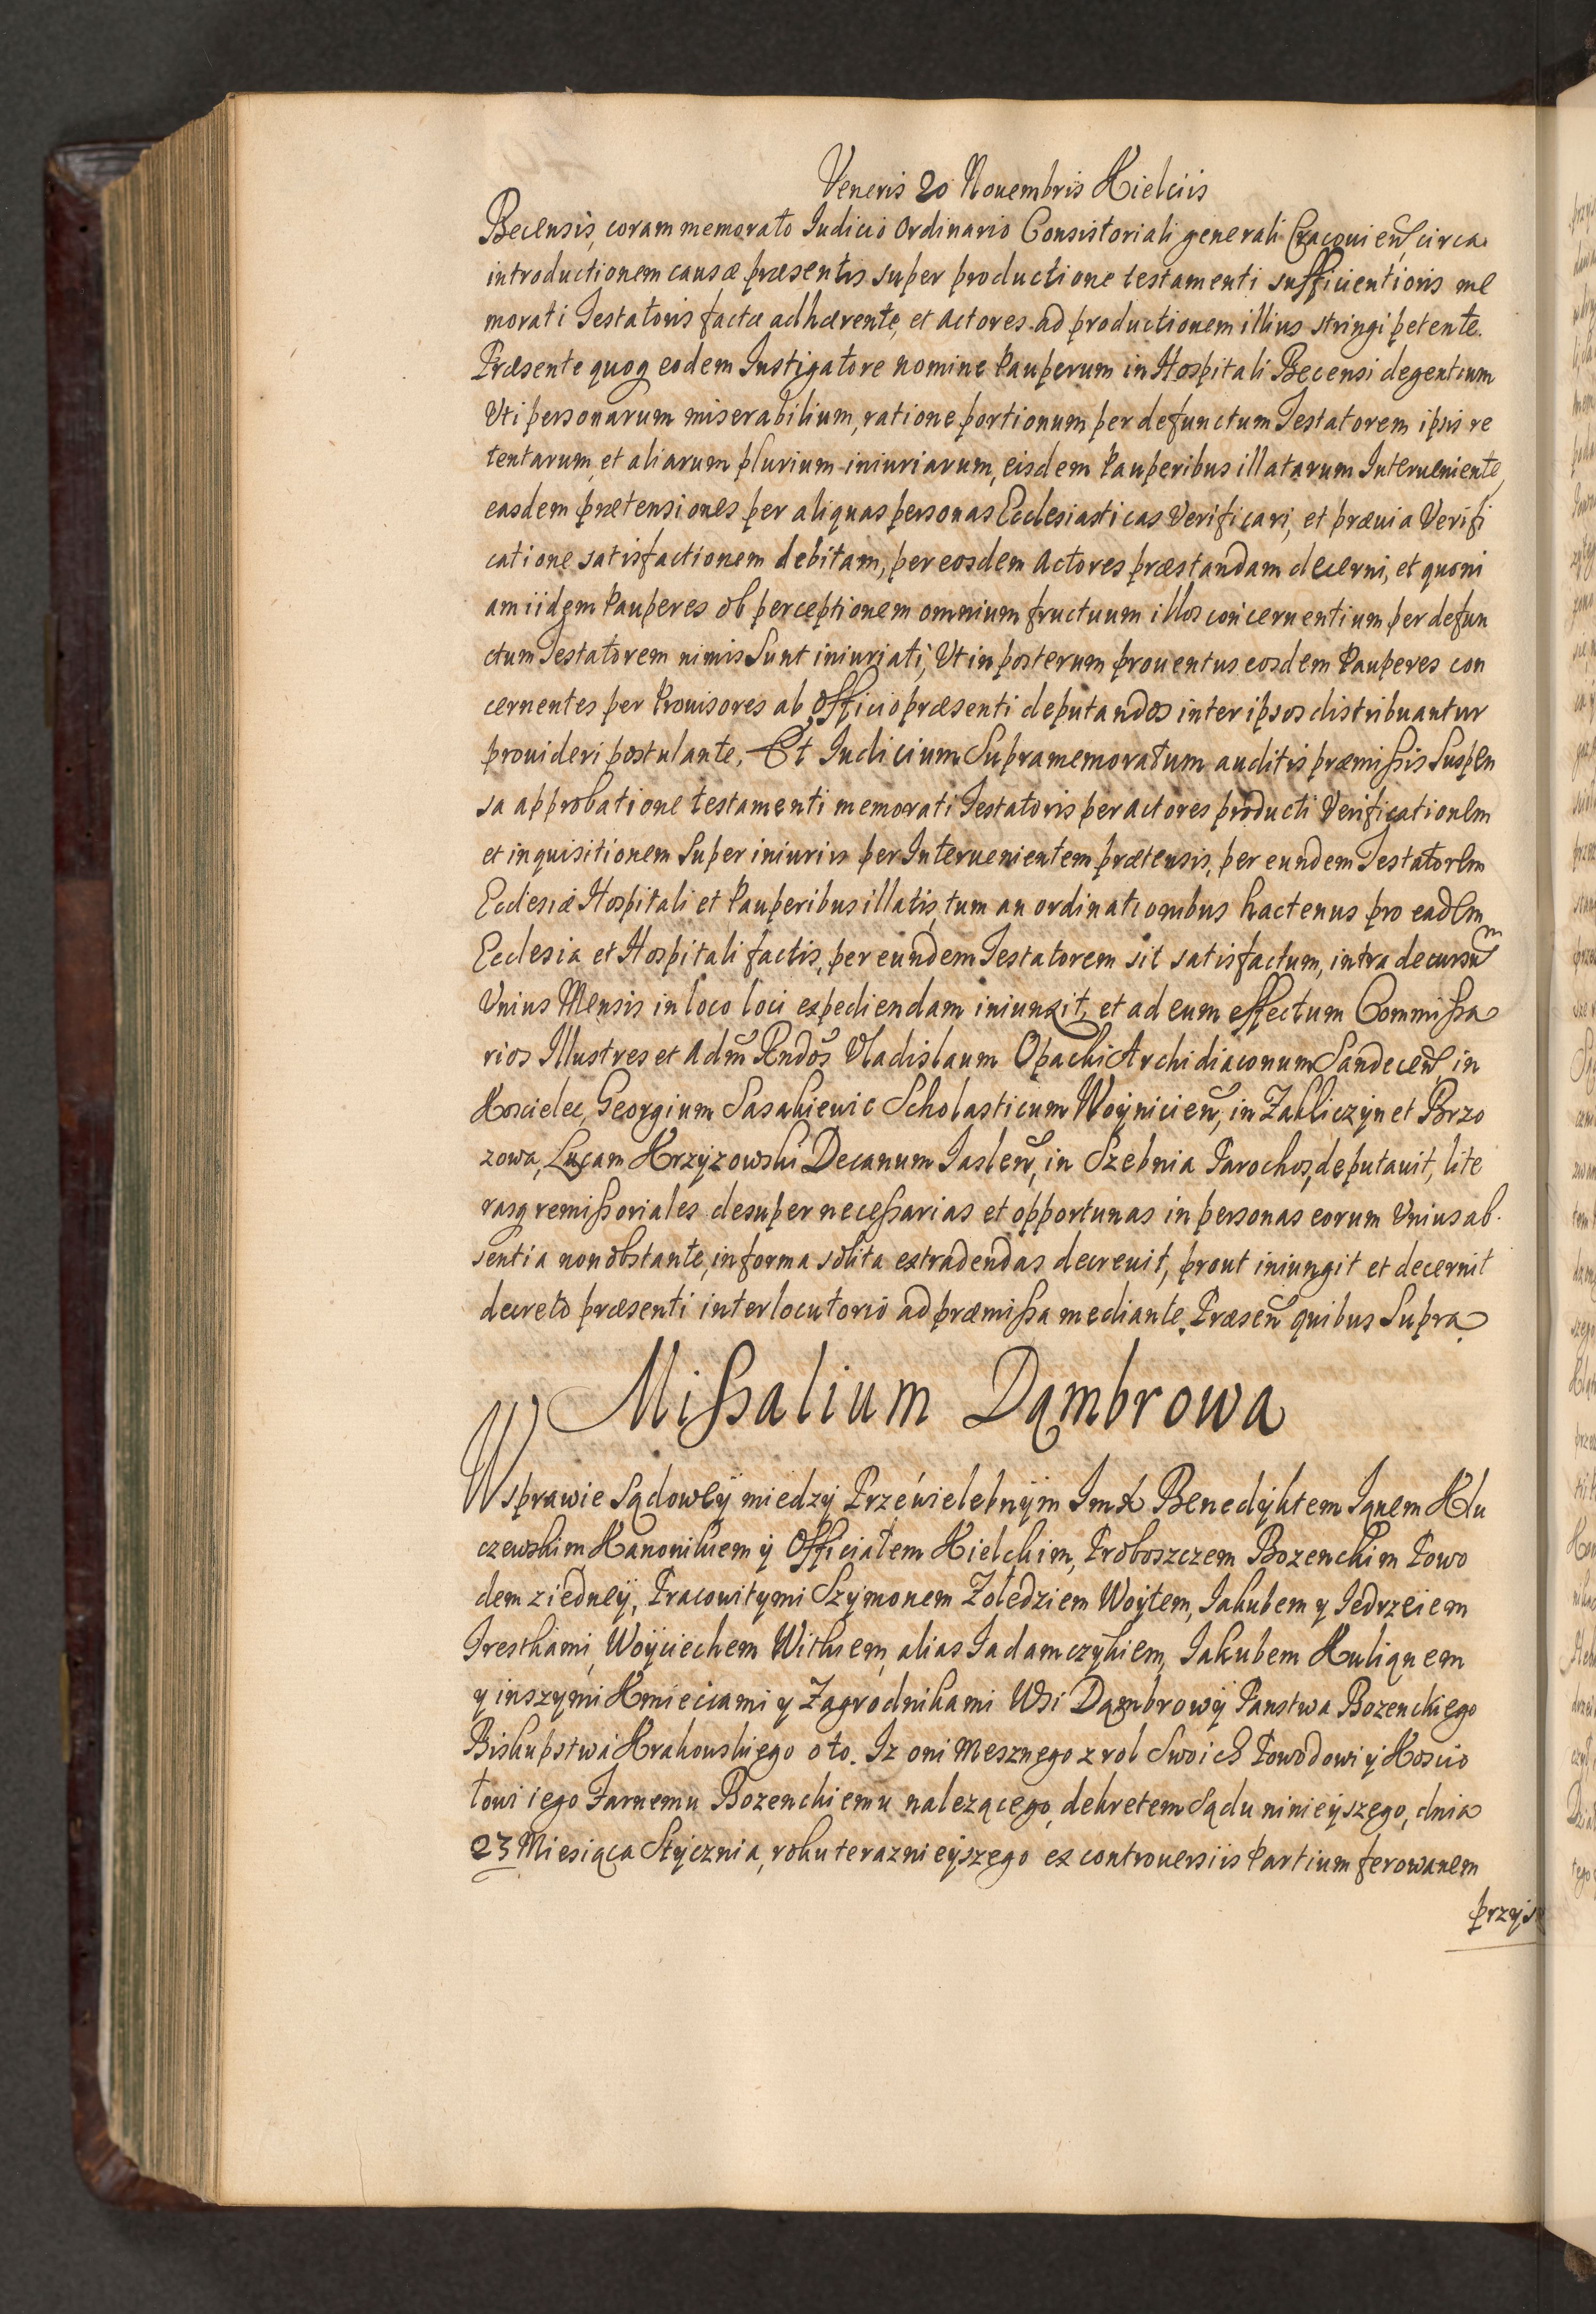 Veneris 20 Nouembris Kielciis
Becensis, coram memorato Iudicio Ordinario Consistoriali generali Cracouien̄ circa
introductionem causæ præsentis super productione testamenti sufficientioris me
morati Testatoris factæ adhærente, et Actores ad productionem illius stringi petente.
Præsente quoq eodem Instigatore nomine Pauperum in Hospitali Becensi degentium
Vti personarum miserabilium, ratione portionum per defunctum Testatorem ipsis re
tentarum, et aliarum plurium iniuriarum, eisdem Pauperibus illatarum Interueniente,
easdem prætensiones per aliquas personas Ecclesiasticas Verificari, et præuia Verifi
catione satisfactionem debitam, per eosdem Actores præstandam decerni, et quoni
am iidem Pauperes ob perceptionem omnium fructuum illos concernentium per defun
ctum Testatorem nimis Sunt iniuriati, Vt in posterum prouentus eosdem Pauperes con
cernentes per Prouisores ab Officio præsenti deputandos inter ipsos distribuantur
prouideri postulante. Et Iudicium Supramemoratum auditis præmissis Suspen
sa approbatione testamenti memorati Testatoris per Actores producti Verificationem
et inquisitionem Super iniuriis per Interuenientem prætensis, per eundem Testatorem
Ecclesiæ Hospitali et Pauperibus illatis, tum an ordinationibus hactenus pro eadem
Ecclesia et Hospitali factis, per eundem Testatorem sit satisfactum, intra decursum
Vnius Mensis in loco loci expediendam iniunxit, et ad eum effectum Commissa
rios Illustres et Adm̄ Rndos̄ Vladislaum Opacki Archidiaconum Sandecen̄, in
Koscielec, Georgium Sasakiewic Scholasticum Woÿnicien̄, in Zakliczÿn et Brzo
zowa, Lucam Krzÿzowski Decanum Iaslen̄, in Szebnia Parochos, deputauit, lite
rasq remissoriales desuper necessarias et opportunas in personas eorum Vnius ab
sentia non obstante, in forma solita extradendas decreuit, prout iniungit et decernit
decreto præsenti interlocutorio ad præmissa mediante. Præsen̄ quibus Supra
Missalium Dąmbrowa
W sprawie Sądoweÿ miedzÿ Przewielebnÿm Imx Benedÿktem Ianem Klu
czewskim Kanonikiem ÿ Officiałem Kielckim, Proboszczem Bozenckim Powo
dem z iedneÿ, Pracowitymi Szÿmonem Zołedziem Woÿtem, Iakubem y Iedrzeiem
Treskami, Woÿciechem Witkiem, alias Iadamczykiem, Iakubem Kuliąnem
y inszymi Kmieciami y Zagrodnikami Wsi Dąmbrowÿ Panstwa Bozenckiego
Biskupstwa Krakouskiego o to. Iz oni Mesznego z rol Swoich Powodowi ÿ Koscio
łowi iego Farnemu Bozenckiemu nalezącego, dekretem Sądu ninieÿszego, dnia
23 Miesiąca Stÿcznia, roku teraznieÿszego ex controuersiis Partium ferowanem
przyis